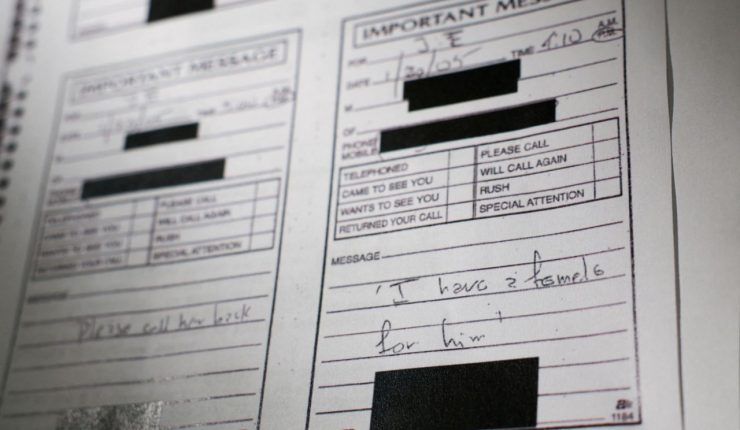 IMPORTANT MESSAGE
FOR J.E
DATE 1/30/05 TIME 1:10 A.M. P.M.
M
OF
PHONE/
MOBILE
TELEPHONED PLEASE CALL
CAME TO SEE YOU WILL CALL AGAIN
WANTS TO SEE YOU RUSH
RETURNED YOUR CALL SPECIAL ATTENTION
MESSAGE
IMPORTANT MES
FOR J.E
DATE TIME
TELEPHONED PLEASE CALL
CAME TO SEE YOU WILL CALL AGAIN
WANTS TO SEE YOU RUSH
RETURNED YOUR CALL SPECIAL ATTENTION
MESSAGE
Please call her back
'I have a female
for him'
1184